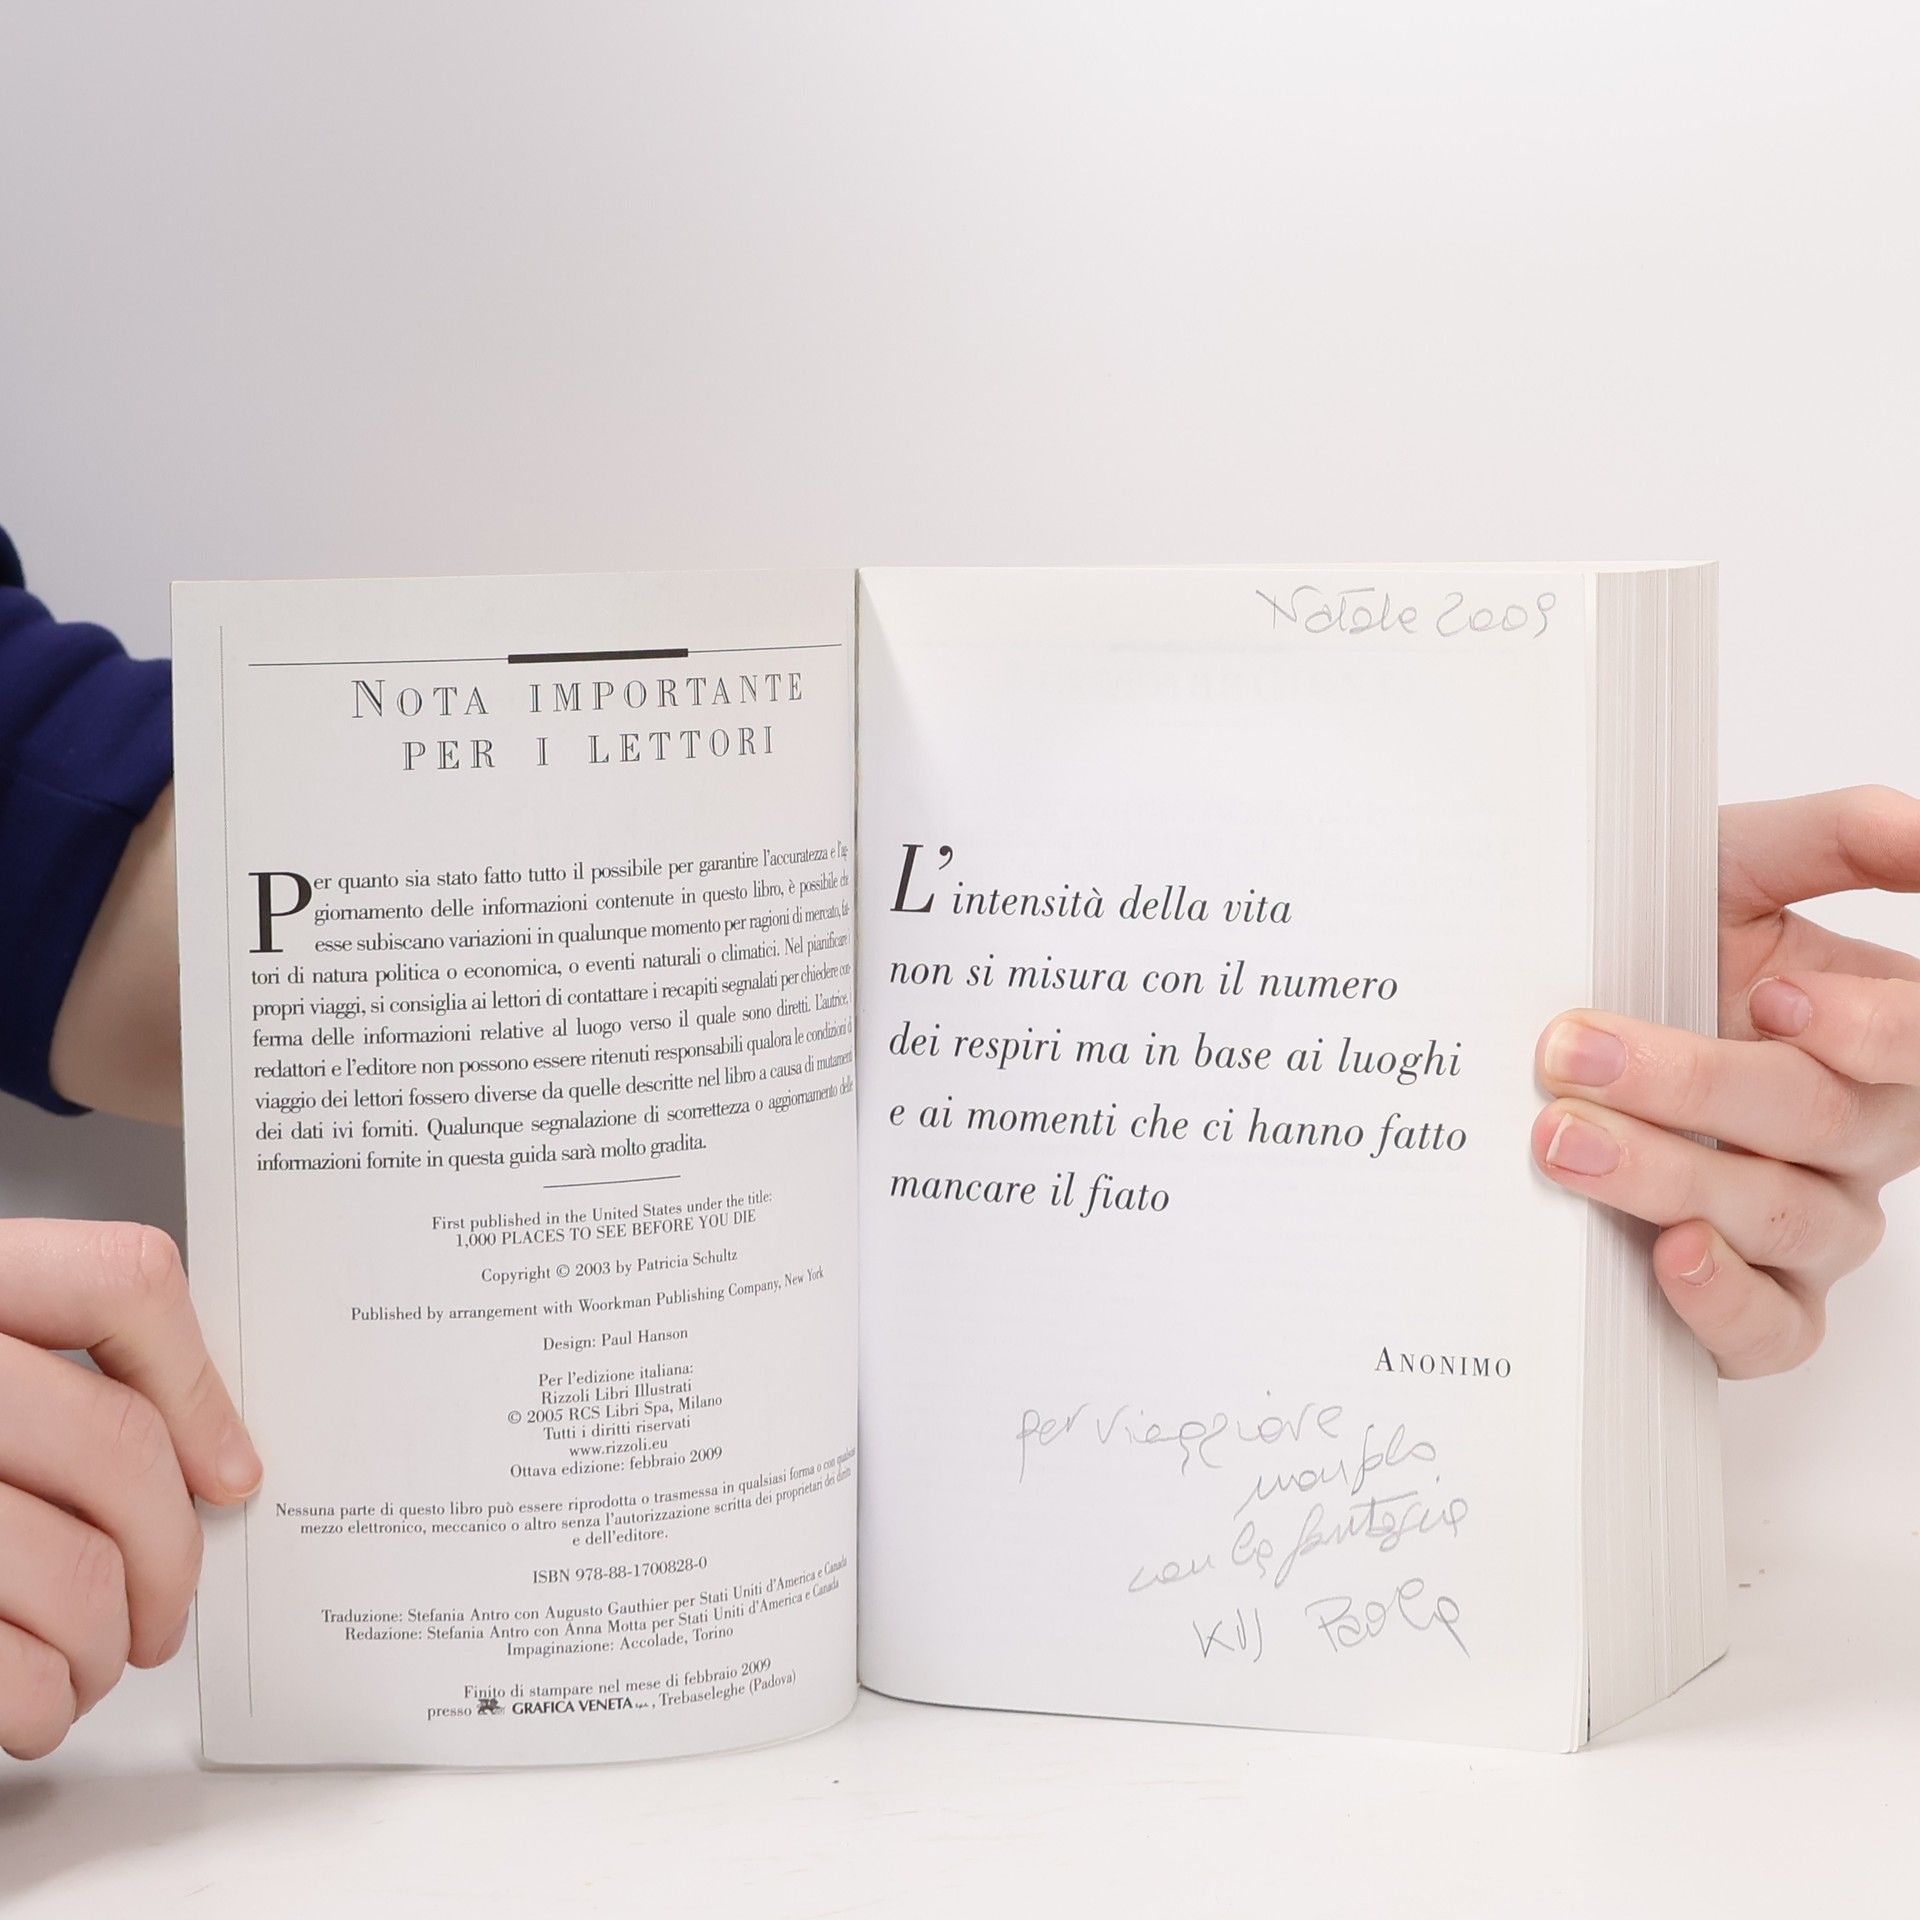 NOTA IMPORTANTE
PER I LETTORI
Per quanto sia stato fatto tutto il possibile per garantire l'accuratezza e l'ag-
giornamento delle informazioni contenute in questo libro, è possibile che
esse subiscano variazioni in qualunque momento per ragioni di mercato, fat-
tori di natura politica o economica, o eventi naturali o climatici. Nel pianificare i
propri viaggi, si consiglia ai lettori di contattare i recapiti segnalati per chiedere con-
ferma delle informazioni relative al luogo verso il quale sono diretti. L'autrice, i
redattori e l'editore non possono essere ritenuti responsabili qualora le condizioni di
viaggio dei lettori fossero diverse da quelle descritte nel libro a causa di mutamenti
dei dati ivi forniti. Qualunque segnalazione di scorrettezza o aggiornamento delle
informazioni fornite in questa guida sarà molto gradita.
First published in the United States under the title:
1,000 PLACES TO SEE BEFORE YOU DIE
Copyright © 2003 by Patricia Schultz
Published by arrangement with Woorkman Publishing Company, New York
Design: Paul Hanson
Per l'edizione italiana:
Rizzoli Libri Illustrati
© 2005 RCS Libri Spa, Milano
Tutti i diritti riservati
www.rizzoli.eu
Ottava edizione: febbraio 2009
Nessuna parte di questo libro può essere riprodotta o trasmessa in qualsiasi forma o con qualsiasi
mezzo elettronico, meccanico o altro senza l'autorizzazione scritta dei proprietari dei diritti
e dell'editore.
ISBN 978-88-1700828-0
Traduzione: Stefania Antro con Augusto Gauthier per Stati Uniti d'America e Canada
Redazione: Stefania Antro con Anna Motta per Stati Uniti d'America e Canada
Impaginazione: Accolade, Torino
Finito di stampare nel mese di febbraio 2009
presso GRAFICA VENETA S.p.A., Trebaseleghe (Padova)
Natale 2009
L'intensità della vita
non si misura con il numero
dei respiri ma in base ai luoghi
e ai momenti che ci hanno fatto
mancare il fiato
ANONIMO
per viaggiare
non solo
con la fantasia
Paola